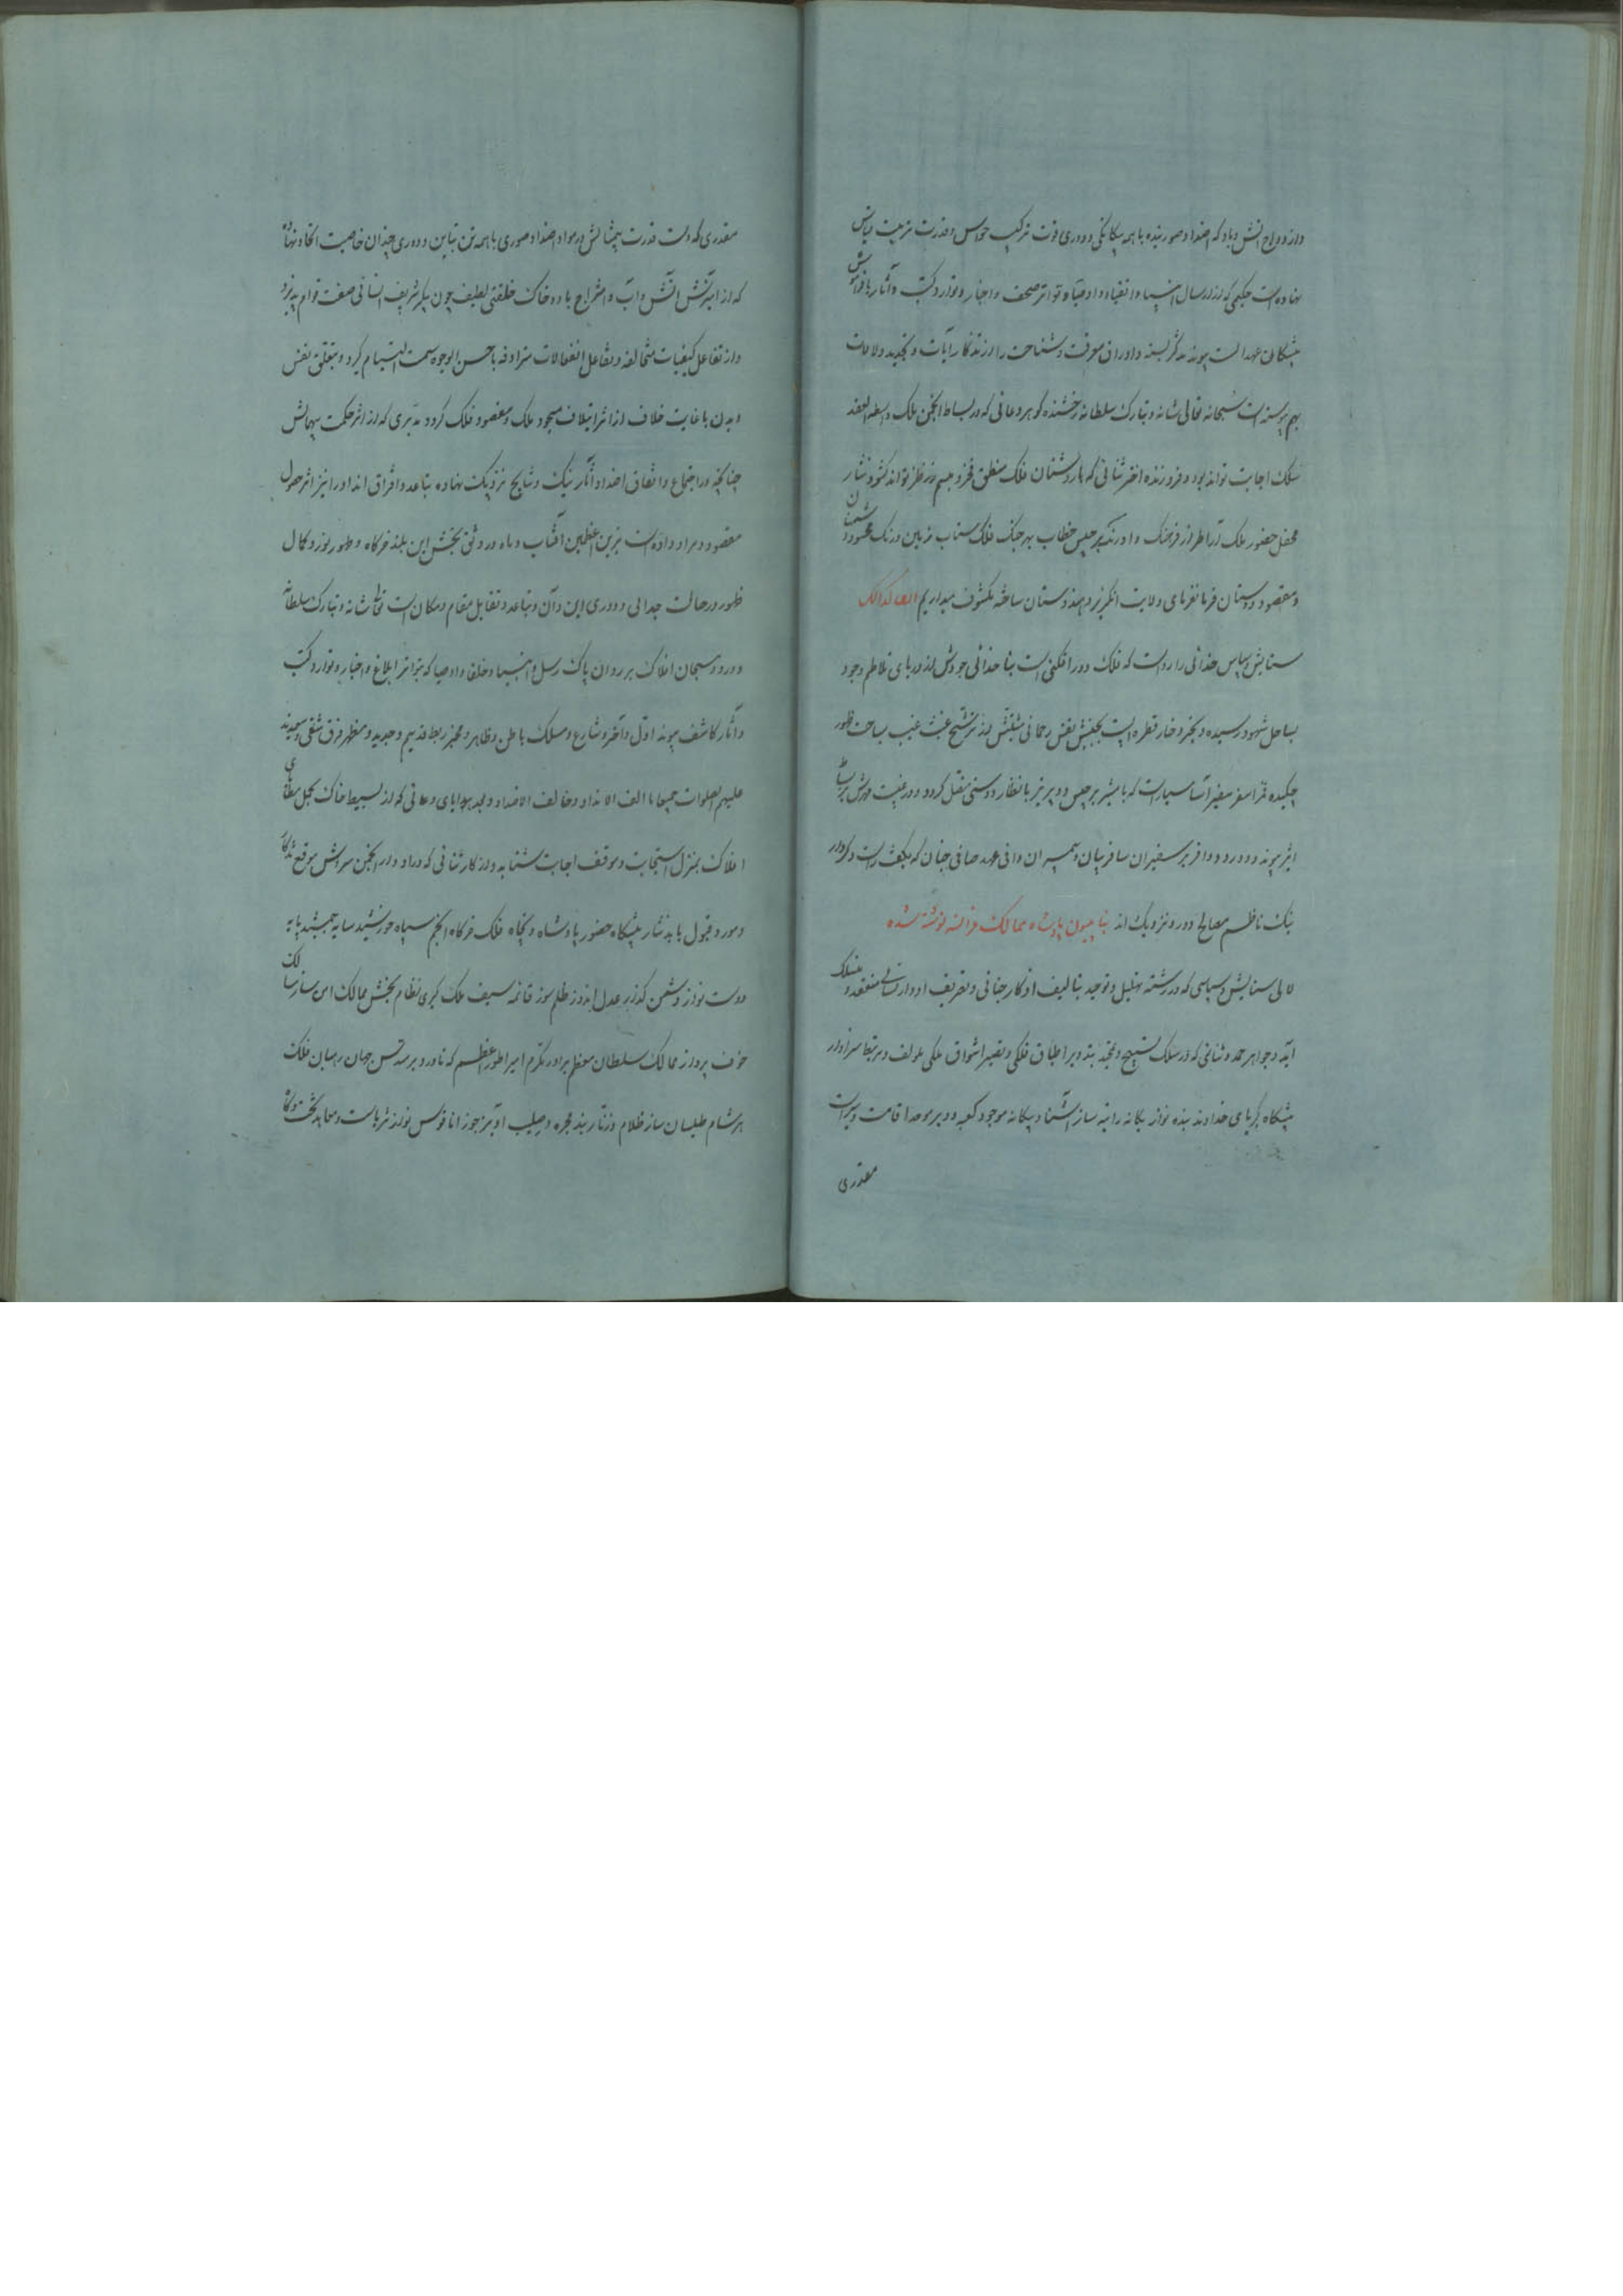 وازدواج آتش و باد که اضداد صورینده با همه بیگانگی و دوری قوت ترکیب حواس و قدرت تربیت
نهاده است حکیمی که از ارسال انبیا و اتقیا و اوصیا و تواتر صحف و اخبار و توارد کتب و آثار با فراموش
پیشگان عهد الست پیوند مذکر بسته و اوراق معرفت و شناخت را از تذکار آیات و تجدید ولایات
بهم پیوسته است سبحانه تعالی شانه و تبارک سلطانه رخشنده گوهر دعائی که در بساط انجمن ملک واسطة العقد
سلک اجابت تواند بود و فروزنده اختر ثنائی که با روشنان فلک منطق فخر و میم در نظر تواند گشود نثار
محفل حضور ملک آرا طراز فرهنگ و اورنگ برجیس خطاب بهرجنگ فلک ستاب
و مقصود دوستان فرمانفرمای ولایت انگریز و هندوستان ساخته مکشوف میداریم
ستایش و سپاس خدائی را رواست که فلک دور افکنی است بنا خدائی جودش از دریای تلاطم وجود
بساحل شهود رسیده و بحر ذخار قطره ایست بجنبش نفس رحمانی مشیتش از ترشح غیب بساحت ظهور
چکیده قمر اسفر سفیر آسا سیارست که با مشیر برجیس و دبیر تیر بانظار دوستی منتقل گردد و
اثر پیوند و درود وافر بر سفیران سافر بیان و پیمبران وافی عهد صافی جنان که بگفت راست و کردار
نیک ناظم مصالح دور و نزدیک اند بناپلیون پادشاه ممالک فرانسه نوشته شده
لآلی ستایش و سپاسی که در رشته تهلیل و توحید بتالیف اذکار جنانی و تعریف ادوار لسانی منعقد و منسلک
آید و جواهر حمد و ثنائی که در سلک تسبیح و تمجید بتدویر اطباق فلکی و تقصیر اشواق ملکی مؤلف و مرتبط سزاوار
پیشگاه کبریای خداوند بنده نواز یگانه راتبه ساز آشنا و بیگانه موجود کعبه و دیر موحد اقامت و سیر است
مقدری
مقدری که دست قدرت بیمثالش در مواد اضداد صوری با همه تن تباین و دوری چندان خاصیت اتحاد نهاد
که از آمیزش آتش و آب و امتزاج باد و خاک خلقتی لطیف چون پیکر شریف انسانی صفت قوام پذیرد
و از تفاعل کیفیات متخالفه و تقاعل انفعالات مترادفه باحسن الوجوه سمت التیام گیرد و بتعلق نفس
و بدن با غایت خلاف از اثر ایتلاف مسجود ملک و مقصود فلک گردد مدبری که از اثر حکمت بیهمالش
چنانچه در اجتماع و اتفاق اضداد آثار نیک و نتایج نزدیک نهاده بتباعد و افتراق انداد را نیز اثر حصول
مقصود و مراد داده است نیرین اعظمین آفتاب و ماه در رونق بخشی این بلند خرگاه و ظهور نور و کمال
ظهور در حالت جدائی و دوری این و آن و تباعد و تقابل مقام و مکان است تعالی شانه و تبارک سلطانه
و درود سبحان افلاک بر روان پاک رسل و انبیا و خلفا و اوصیا که بتواتر ابلاغ و اخبار و توارد کتب
و آثار کاشف پیوند اول و آخر و شارع و مسلک باطن و ظاهر و مخبر ربط قدیم و جدید و مظهر فرق شقی و سعیدند
علیهم الصلوات جمیعا ما الف الانداد و خالف الاضداد و بعد هدایای دعائی که از بسیط خاک بمحل
افلاک بمنزل استجابت و موقف اجابت شتابد و از کار ثنائی که در ادوار انجمن سروش بموقع تذکار
و مورد قبول یابد نثار پیشگاه حضور پادشاه ذیجاه فلک خرگاه انجم سپاه خورشید سایه جمشید پایه
دوست نواز دشمن گداز عدل اندوز ظلم سوز قائمه سیف ملک گیری نظام بخش ممالک امن ساز مسالک
خوف پرداز ممالک سلطان معظم برادر مکرم امپراطور اعظم که تا در دیر مسدس جهان رهبان فلک
هر شام طیلسان ساز ظلام و زنار بند مجره و صلیب آویز جوزا ناقوس نواز ثریاست و معابد